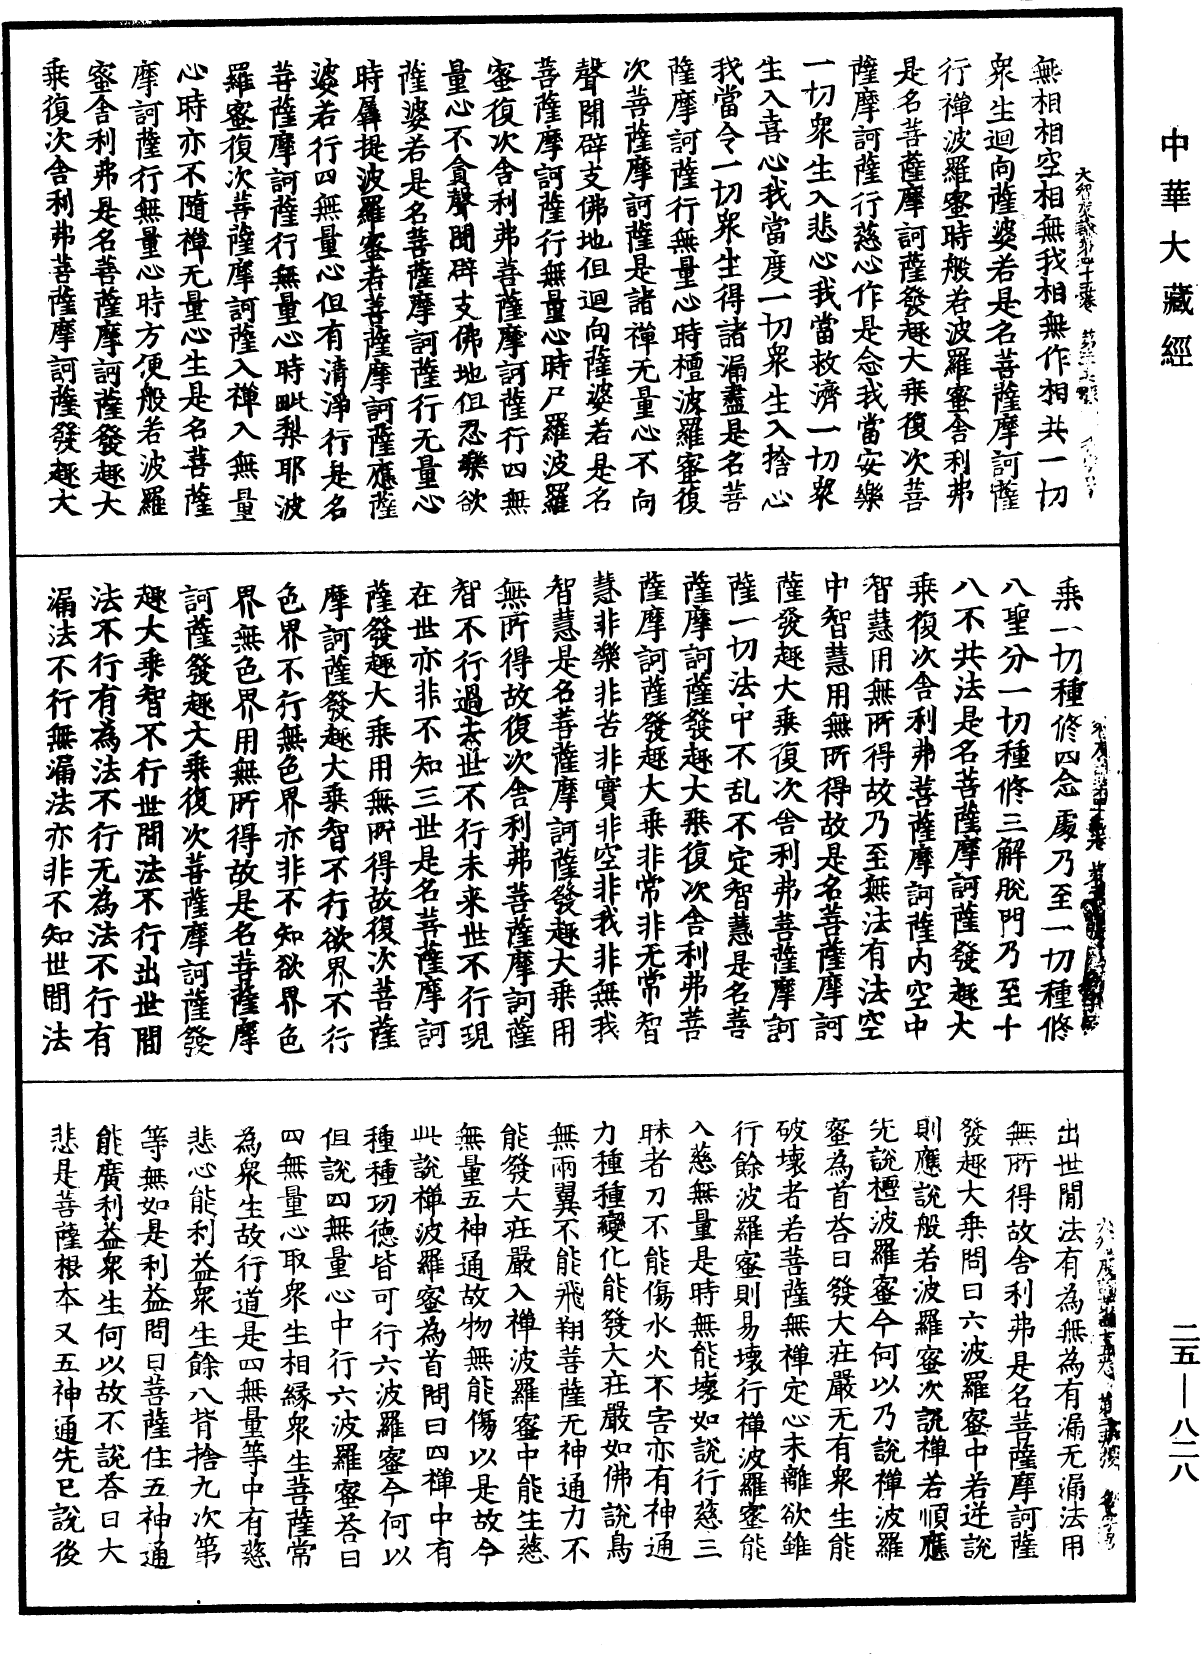 中華大藏經
無相相空相無我相無作相共一切
衆生迴向薩婆若是名菩薩摩訶薩
行禪波羅蜜時般若波羅蜜舍利弗
是名菩薩摩訶薩發趣大乗復次菩
薩摩訶薩行慈心作是念我當安樂
一切衆生入悲心我當救濟一切衆
生入喜心我當度一切衆生入捨心
我當令一切衆生得諸漏盡是名菩
薩摩訶薩行無量心時檀波羅蜜復
次菩薩摩訶薩是諸禪无量心不向
聲聞辟支佛地但迴向薩婆若是名
菩薩摩訶薩行無量心時尸羅波羅
蜜復次舍利弗菩薩摩訶薩行四無
量心不貪聲聞辟支佛地但忍樂欲
薩婆若是名菩薩摩訶薩行无量心
時羼提波羅蜜若菩薩摩訶薩應薩
婆若行四無量心但有清淨行是名
菩薩摩訶薩行無量心時毗梨耶波
羅蜜復次菩薩摩訶薩入禪入無量
心時亦不隨禪无量心生是名菩薩
摩訶薩行無量心時方便般若波羅
蜜舍利弗是名菩薩摩訶薩發趣大
乗復次舍利弗菩薩摩訶薩發趣大
乗一切種修四念處乃至一切種修
八聖分一切種修三解脫門乃至十
八不共法是名菩薩摩訶薩發趣大
乗復次舍利弗菩薩摩訶薩內空中
智慧用無所得故乃至無法有法空
中智慧用無所得故是名菩薩摩訶
薩發趣大乗復次舍利弗菩薩摩訶
薩一切法中不乱不定智慧是名菩
薩摩訶薩發趣大乗復次舍利弗菩
薩摩訶薩發趣大乗非常非无常智
慧非樂非苦非實非空非我非無我
智慧是名菩薩摩訶薩發趣大乗用
無所得故復次舍利弗菩薩摩訶薩
智不行過去世不行未来世不行現
在世亦非不知三世是名菩薩摩訶
薩發趣大乗用無所得故復次菩薩
摩訶薩發趣大乗智不行欲界不行
色界不行無色界亦非不知欲界色
界無色界用無所得故是名菩薩摩
訶薩發趣大乗復次菩薩摩訶薩發
趣大乗智不行世間法不行出世間
法不行有為法不行无為法不行有
漏法不行無漏法亦非不知世間法
出世間法有為無為有漏无漏法用
無所得故舍利弗是名菩薩摩訶薩
發趣大乗問曰六波羅蜜中若逆說
則應說般若波羅蜜次說禪若順應
先說檀波羅蜜今何以乃說禪波羅
蜜為首荅曰發大莊嚴无有衆生能
破壞者若菩薩無禪定心未離欲雖
行餘波羅蜜則易壞行禪波羅蜜能
入慈無量是時無能壞如說行慈三
昧者刀不能傷水火不害亦有神通
力種種變化能發大莊嚴如佛說鳥
無兩翼不能飛翔菩薩无神通力不
能發大莊嚴入禪波羅蜜中能生慈
無量五神通故物無能傷以是故今
此說禪波羅蜜為首問曰四禪中有
種種功德皆可行六波羅蜜今何以
但說四無量心中行六波羅蜜荅曰
四無量心取衆生相緣衆生菩薩常
為衆生故行道是四無量等中有慈
悲心能利益衆生餘八背捨九次第
等無如是利益問曰菩薩住五神通
能廣利益衆生何以故不說荅曰大
悲是菩薩根本又五神通先已說後
二五—八二八